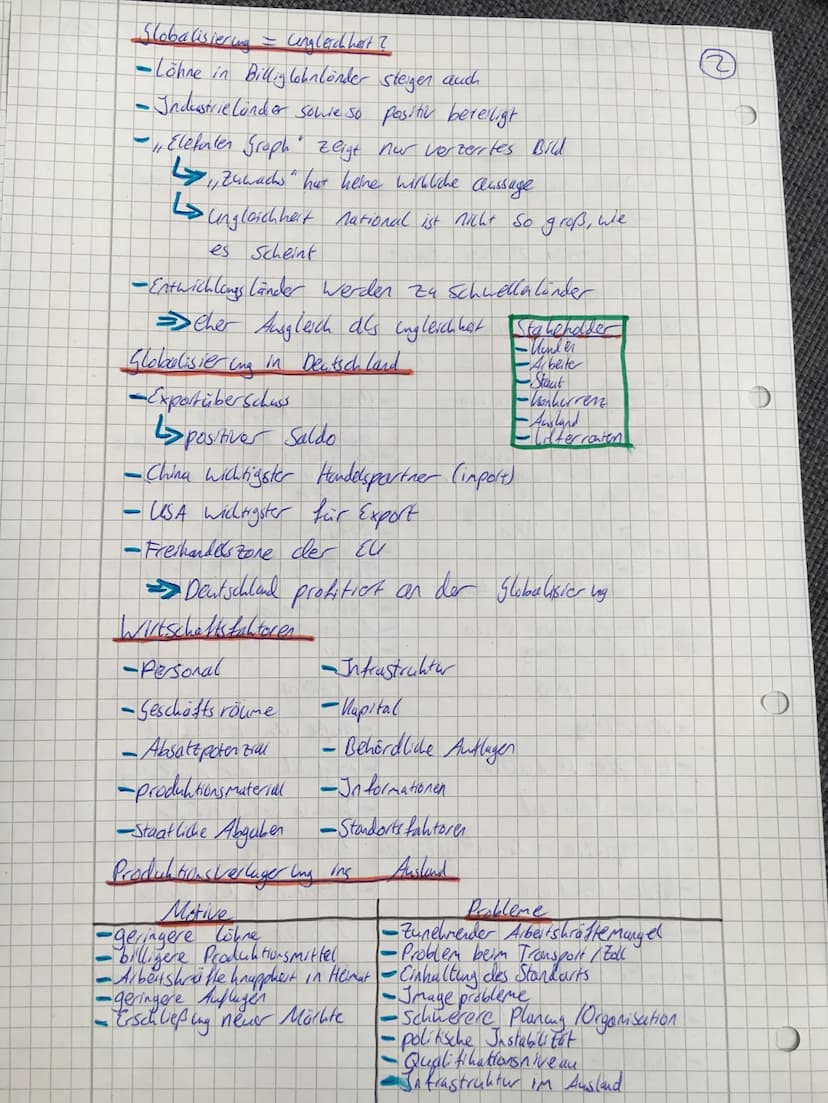 Globalisierung = Ungleichheit?
2
- Löhne in Billiglohnländer steigen auch
- Industrieländer sowieso positiv beteiligt
- „Elefanten Graph" zeigt nur verzerrtes Bild
↳ „Zuwachs" hat keine wirkliche Aussage
↳ Ungleichheit national ist nicht so groß, wie
es scheint
- Entwicklungsländer werden zu Schwelländer
⇒ Eher Ausgleich als Ungleichheit
Stakeholder
- Kunden
- Arbeiter
- Staat
- Konkurrenz
- Ausland
- Lieferanten
Globalisierung in Deutschland
- Exportüberschuss
↳ positiver Saldo
- China wichtigster Handelspartner (import)
- USA wichtigster für Export
- Freihandelszone der EU
⇒ Deutschland profitiert an der Globalisierung
Wirtschaftsfaktoren
- Personal
- Geschäftsräume
- Absatzpotenzial
- Produktionsmaterial
- Staatliche Abgaben
- Infrastruktur
- Kapital
- Behördliche Auflagen
- Informationen
- Standortsfaktoren
Produktionsverlagerung ins Ausland
Motive
- geringere Löhne
- billigere Produktionsmittel
- Arbeitskräfteknappheit in Heimat
- geringere Auflagen
- Erschließung neuer Märkte
Probleme
- Zunehmender Arbeitskräftemangel
- Problem beim Transport / Zoll
- Einhaltung des Standarts
- Image probleme
- Schwerere Planung / Organisation
- politische Instabilität
- Qualifikationsniveau
- Infrastruktur im Ausland